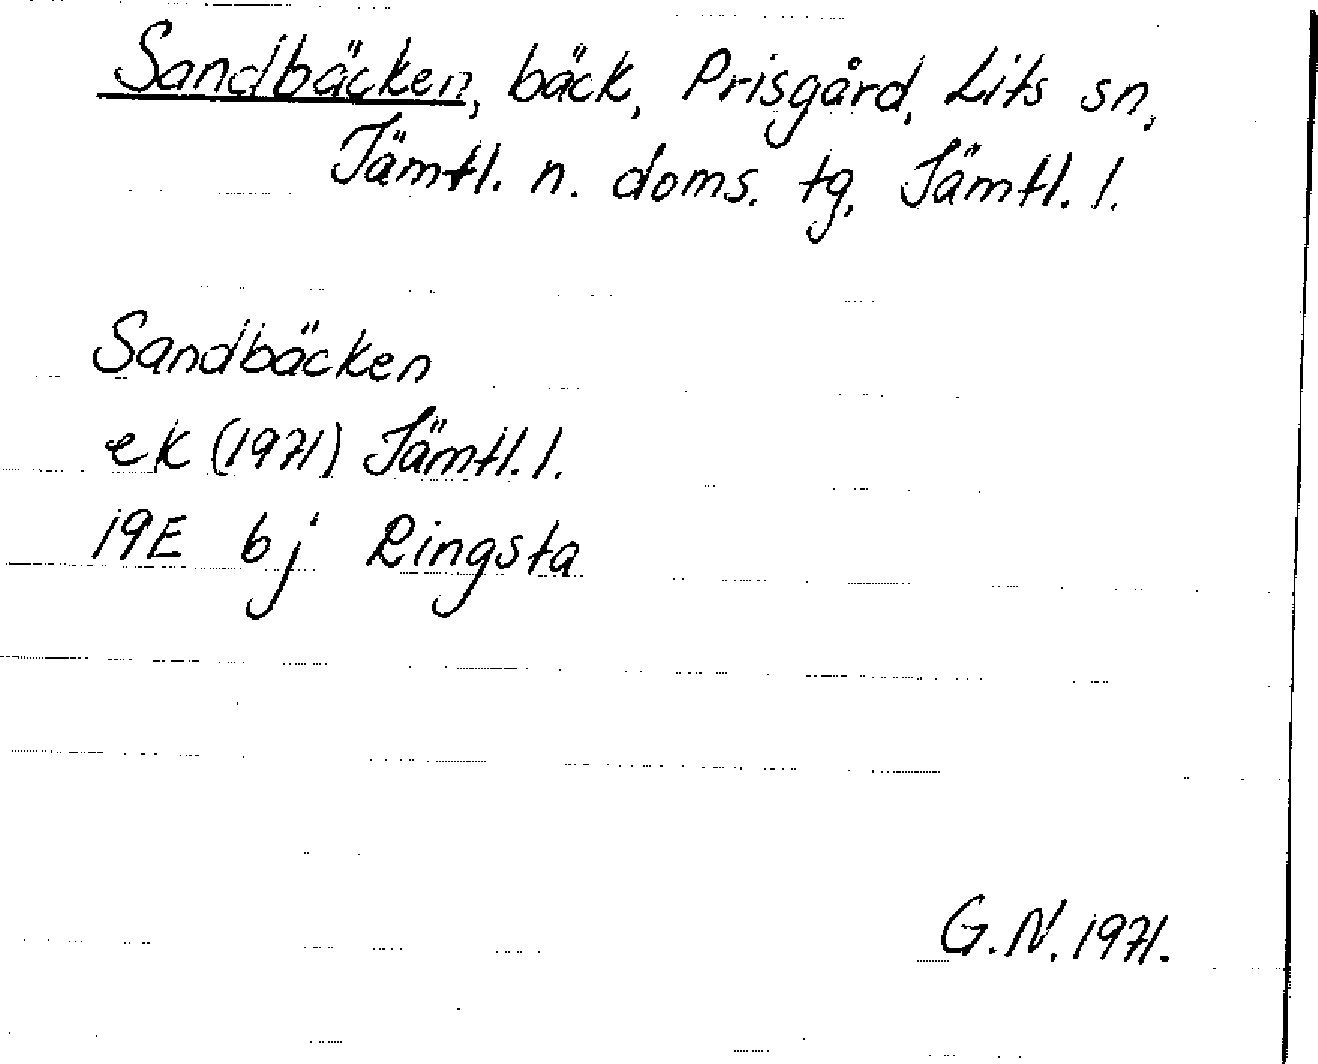 Sandbäcken, bäck, Prisgård, Lits sn,
Jämtl. n. doms. tg, Jämtl. l.
Sandbäcken
ek (1971) Jämtl. l.
19E bj Ringsta
G.N. 1971.